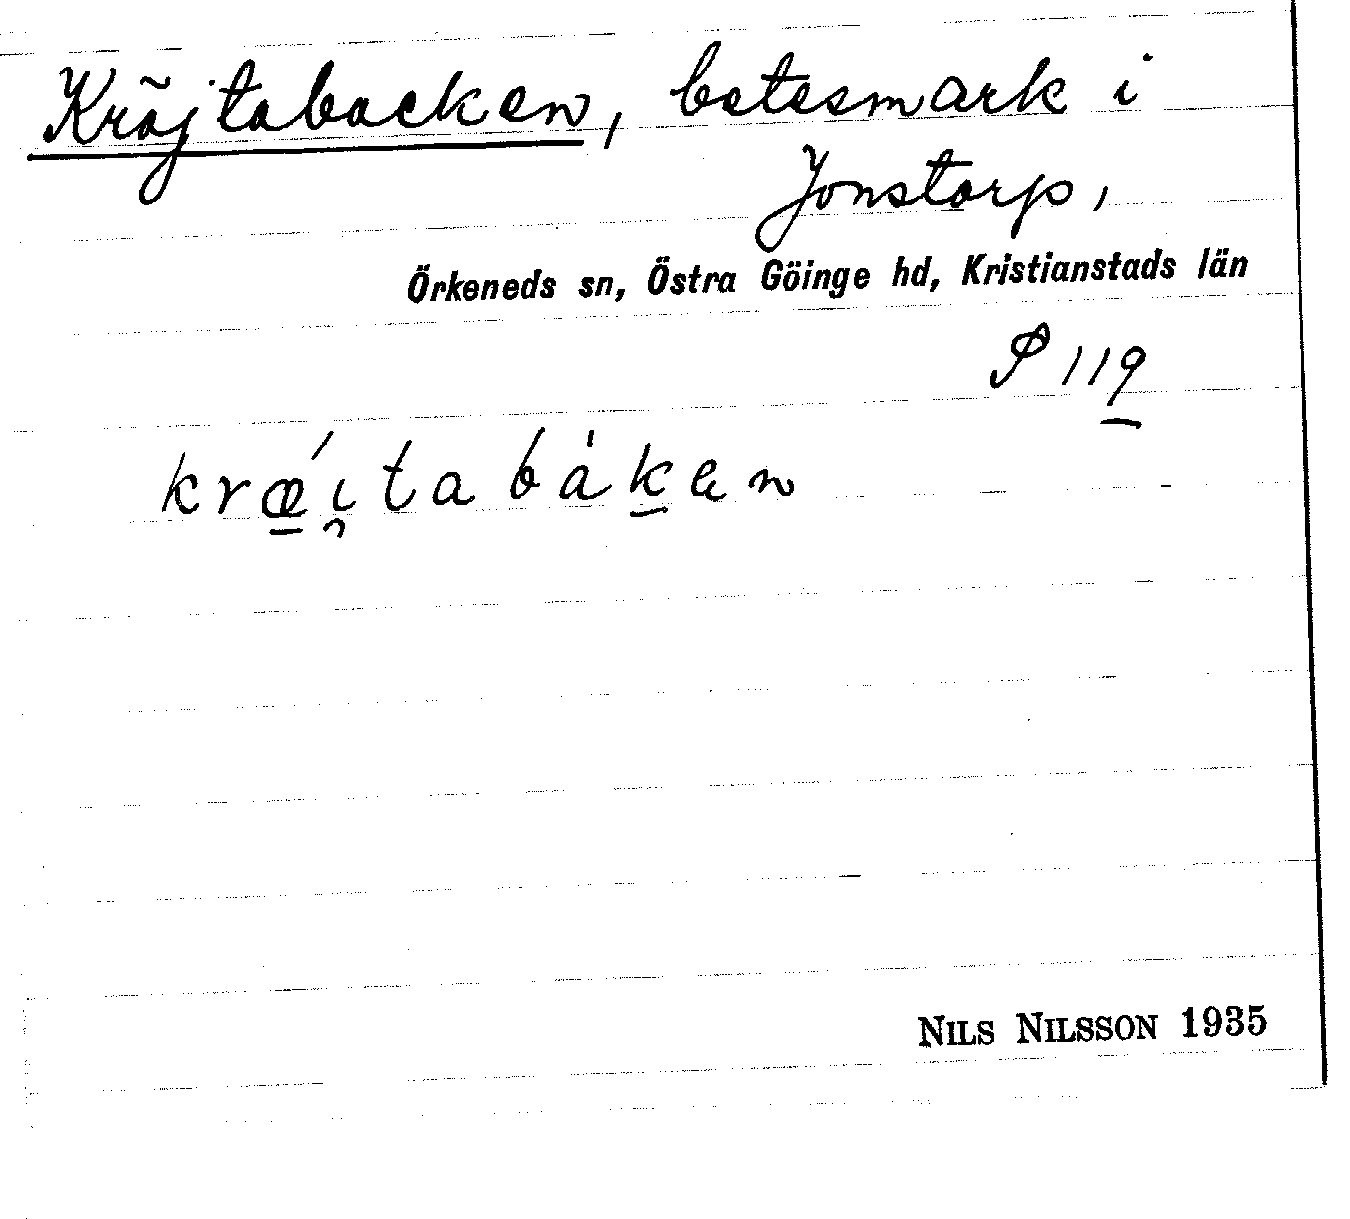 Kröjtabacken, betesmark i
Jonstorp,
Örkeneds sn, Östra Göinge hd, Kristianstads län
P 119
krœ́i̯tabàken
NILS NILSSON 1935